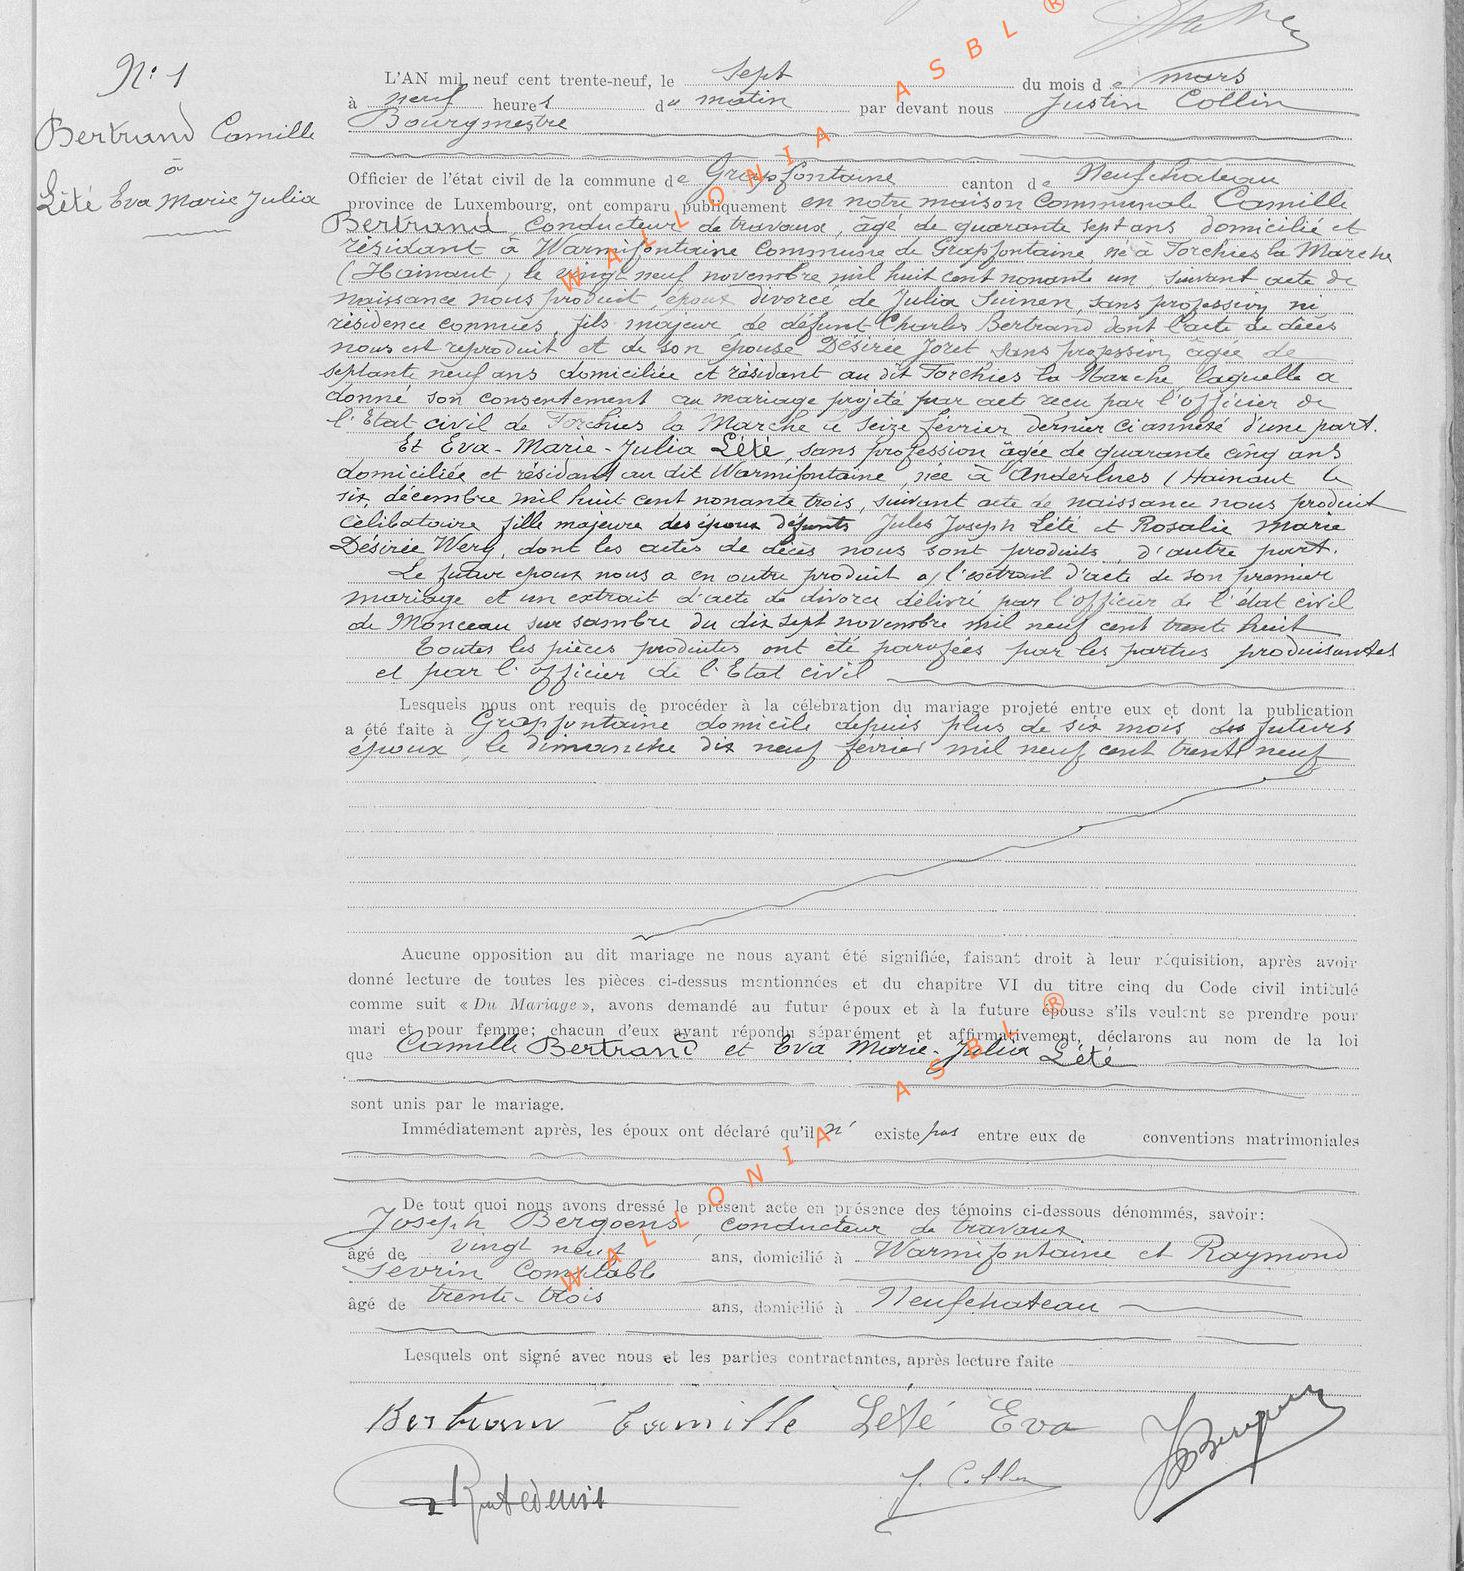 N° 1
Bertrand Camille
à
Lété Eva Marie Julia
L'AN mil neuf cent trente-neuf, le sept du mois de mars
à neuf heures du matin par devant nous Justin Collin
Bourgmestre
Officier de l'état civil de la commune de Grapfontaine canton de Neufchateau
province de Luxembourg, ont comparu publiquement en notre maison Communale Camille
Bertrand, conducteur de travaux, âgé de quarante sept ans domicilié et
résidant à Warmifontaine Commune de Grapfontaine, né à Forchies la Marche
(Hainaut) le vingt neuf novembre mil huit cent nonante un, suivant acte de
naissance nous produit, époux divorcé de Julia Sumen, sans profession ni
résidence connues, fils majeur de défunt Charles Bertrand dont l'acte de décès
nous est reproduit et de son épouse Désirée Joret sans profession âgée de
septante neuf ans domiciliée et résidant au dit Forchies la Marche, laquelle a
donné son consentement au mariage projeté par act reçu par l'officier de
l'Etat civil de Forchies la Marche le seize février dernier ci annexé d'une part.
Et Eva-Marie-Julia Lété, sans profession âgée de quarante cinq ans
domiciliée et résidant au dit Warmifontaine, née à Anderlues (Hainaut le
six décembre mil huit cent nonante trois, suivant acte de naissance nous produit
célibataire fille majeure des époux défunts Jules Joseph Lété et Rosalie Marie
Désirée Wery, dont les actes de décès nous sont produits d'autre part.
Le futur epoux nous a en outre produit l'extrait d'acte de son premier
mariage et un extrait d'acte de divorce délivré par l'officier de l'état civil
de Monceau sur sambre du dix sept novembre mil neuf cent trente huit
Toutes les pièces produites ont été parafées par les parties produisantes
et par l'officier de l'Etat civil
Lesquels nous ont requis de procéder à la célébration du mariage projeté entre eux et dont la publication
a été faite à Grapfontaine domicile depuis plus de six mois des futurs
époux, le dimanche dix neuf février mil neuf cent trente neuf
Aucune opposition au dit mariage ne nous ayant été signifiée, faisant droit à leur réquisition, après avoir
donné lecture de toutes les pièces ci-dessus mentionnées et du chapitre VI du titre cinq du Code civil intitulé
comme suit « Du Mariage », avons demandé au futur époux et à la future épouse s'ils veulent se prendre pour
mari et pour femme; chacun d'eux ayant répondu séparément et affirmativement, déclarons au nom de la loi
que Camille Bertrand et Eva Marie-Julia Lété
sont unis par le mariage.
Immédiatement après, les époux ont déclaré qu'il n' existe pas entre eux de conventions matrimoniales
De tout quoi nous avons dressé le présent acte en présence des témoins ci-dessous dénommés, savoir:
Joseph Bergoens, conducteur de travaux
âgé de vingt neuf ans, domicilié à Warmifontaine et Raymond
Sevrin Comptable
âgé de trente-trois ans, domicilié à Neufchateau
Lesquels ont signé avec nous et les parties contractantes, après lecture faite
Bertrand Camille Lété Eva
J. Collin
WALLONIA ASBL ®
WALLONIA ASBL ®